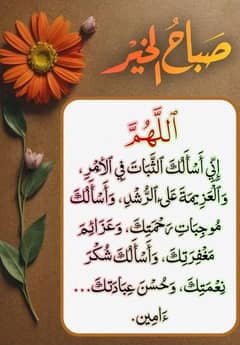 صَبَاحُ الخَيْر
اللَّهُمَّ
إِنِّي أَسْأَلُكَ الثَّبَاتَ فِي الأَمْرِ،
وَالْعَزِيمَةَ عَلَى الرُّشْدِ، وَأَسْأَلُكَ
مُوجِبَاتِ رَحْمَتِكَ، وَعَزَائِمَ
مَغْفِرَتِكَ، وَأَسْأَلُكَ شُكْرَ
نِعْمَتِكَ، وَحُسْنَ عِبَادَتكَ...
ءَامِين.